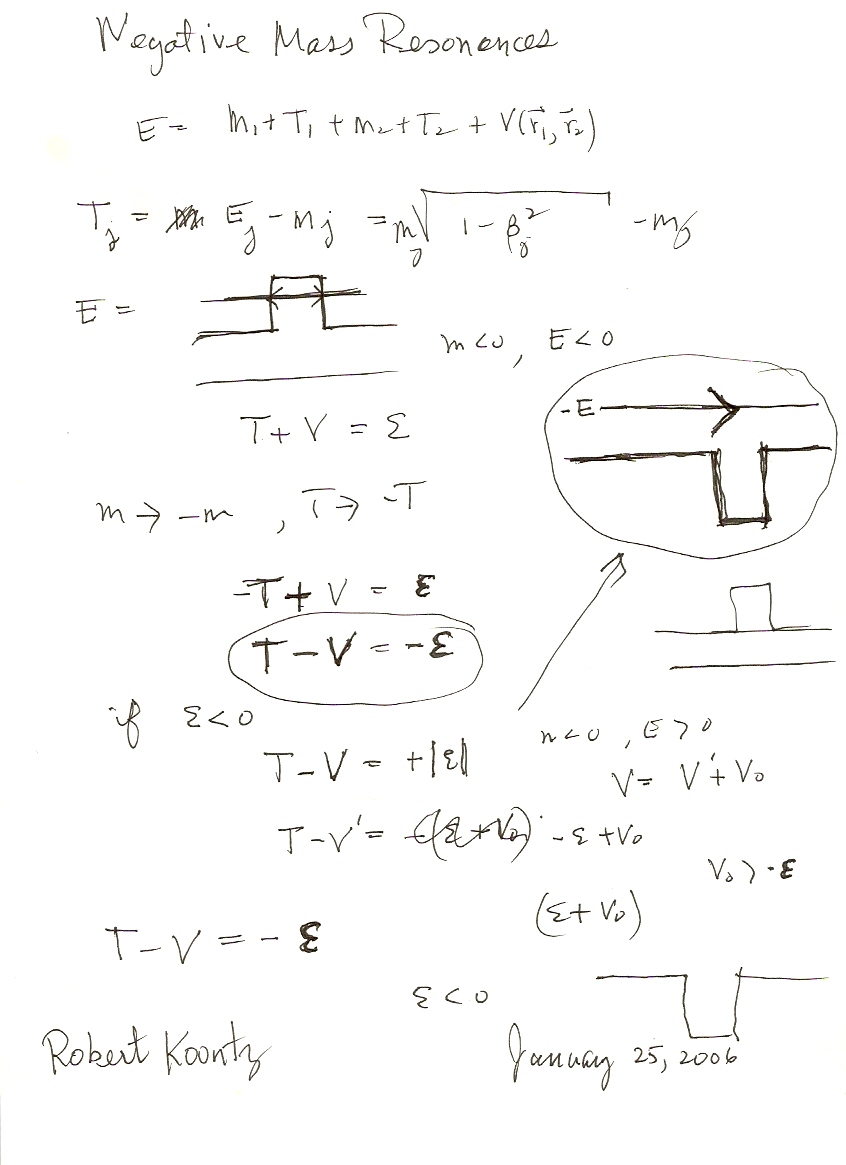 Negative Mass Resonances
E = m₁ + T₁ + m₂ + T₂ + V(r⃗₁, r⃗₂)
T_j = E_j - m_j = m_j √(1 - β_j²) - m_j
E =
m < 0, E < 0
-E
T + V = Ɛ
m → -m, T → -T
-T + V = Ɛ
T - V = -Ɛ
if Ɛ < 0
m < 0, E > 0
T - V = +|Ɛ|
V = V' + V₀
T - V' = -Ɛ + V₀
V₀ > -Ɛ
(Ɛ + V₀)
T - V = -Ɛ
Ɛ < 0
Robert Koontz
January 25, 2006